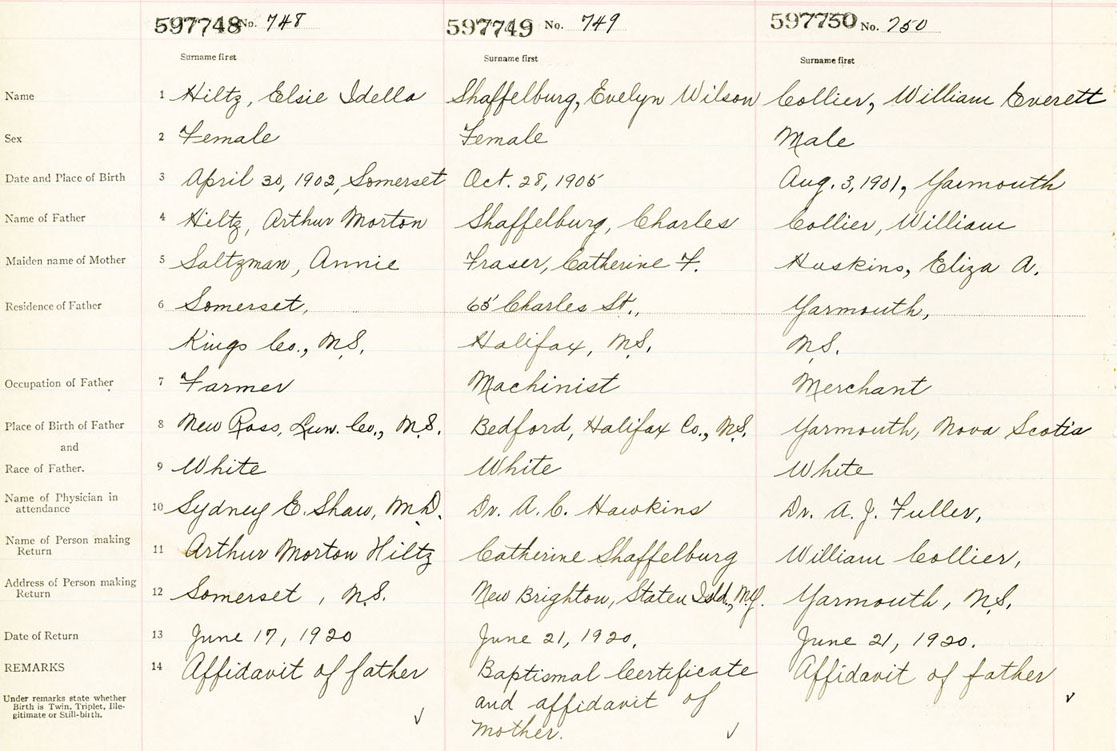 597748 No. 748 597749 No. 749 597750 No. 750
Surname first Surname first Surname first
Name 1 Hiltz, Elsie Idella Shaffelburg, Evelyn Wilson Collier, William Everett
Sex 2 Female Female Male
Date and Place of Birth 3 April 30, 1902, Somerset Oct. 28, 1905 Aug. 3, 1901, Yarmouth
Name of Father 4 Hiltz, Arthur Morton Shaffelburg, Charles Collier, William
Maiden name of Mother 5 Saltzman, Annie Fraser, Catherine F. Huskins, Eliza A.
Residence of Father 6 Somerset, 65 Charles St., Yarmouth,
Kings Co., N.S. Halifax, N.S. N.S.
Occupation of Father 7 Farmer Machinist Merchant
Place of Birth of Father 8 New Ross, Lun. Co., N.S. Bedford, Halifax Co., N.S. Yarmouth, Nova Scotia
and
Race of Father. 9 White White White
Name of Physician in
attendance 10 Sydney E. Shaw, M.D. Dr. A. C. Hawkins Dr. A. J. Fuller,
Name of Person making
Return 11 Arthur Morton Hiltz Catherine Shaffelburg William Collier,
Address of Person making
Return 12 Somerset, N.S. New Brighton, Staten Isld., N.Y. Yarmouth, N.S.
Date of Return 13 June 17, 1920 June 21, 1920. June 21, 1920.
REMARKS 14 Affidavit of father Baptismal Certificate Affidavit of father
Under remarks state whether and affidavit of
Birth is Twin, Triplet, Ille- Mother.
gitimate or Still-birth.